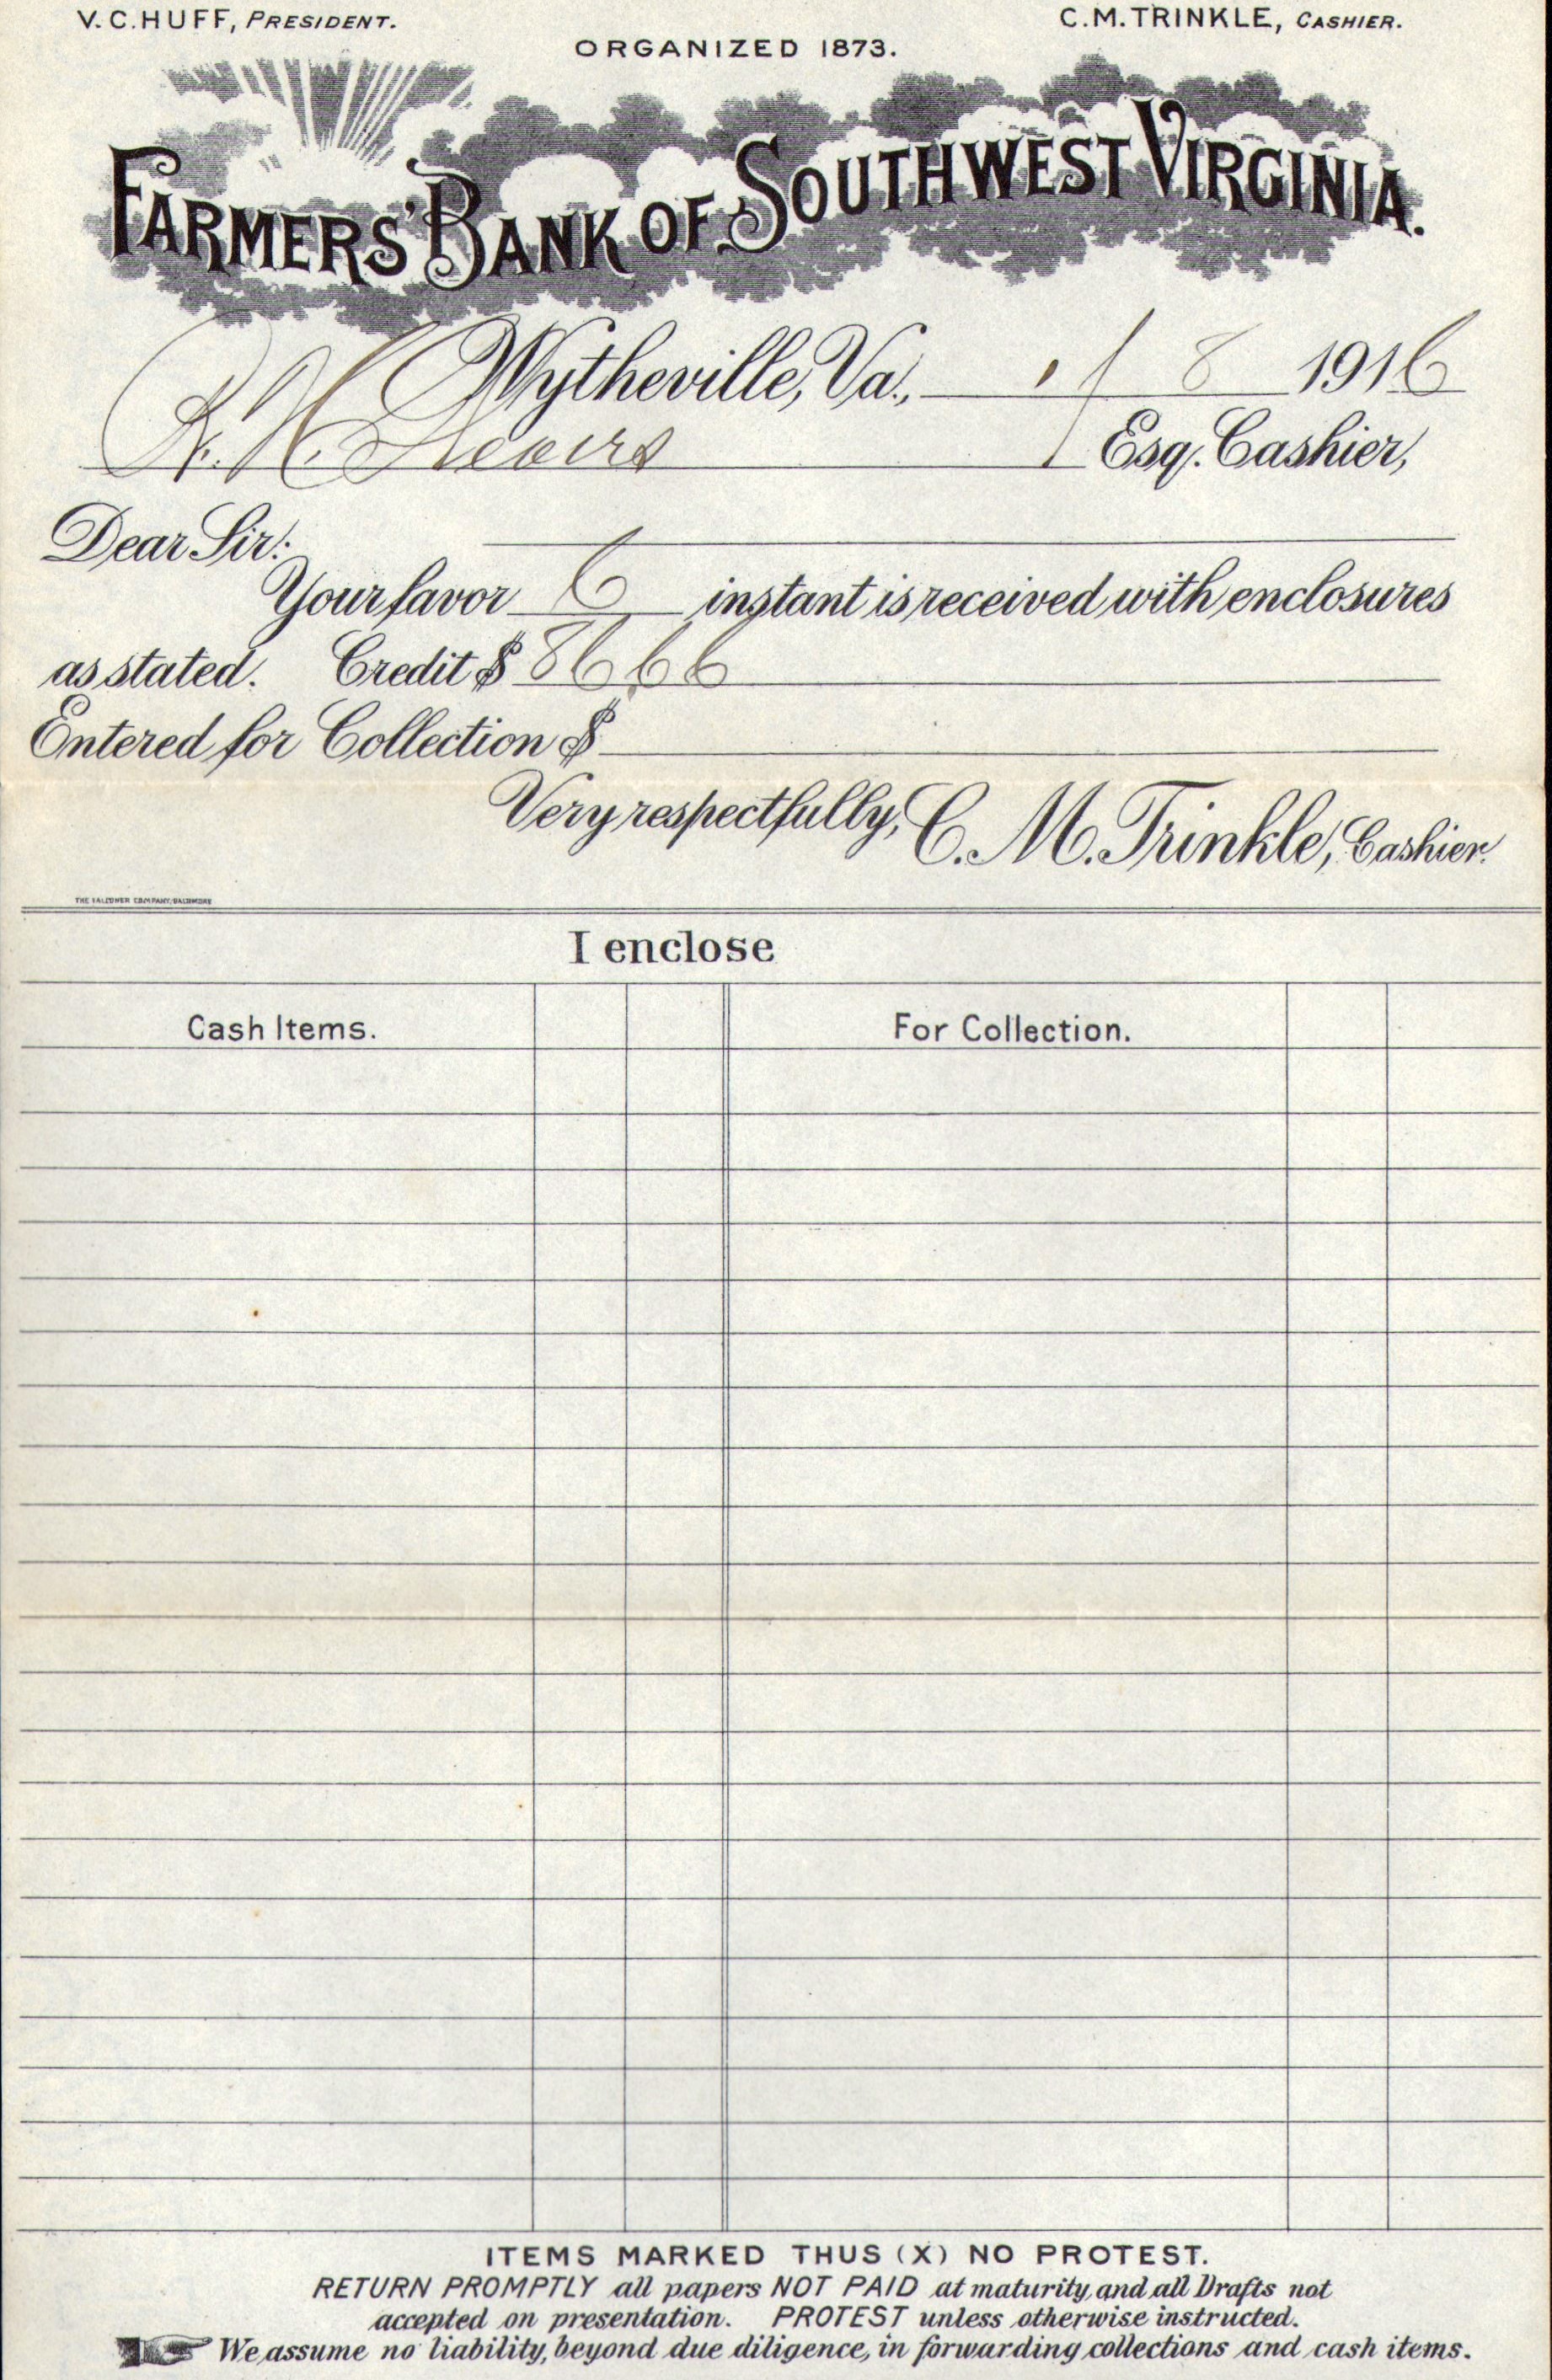 V. C. HUFF, PRESIDENT.
C. M. TRINKLE, CASHIER.
ORGANIZED 1873.
FARMERS' BANK OF SOUTHWEST VIRGINIA.
Wytheville, Va., 1/8 1916
Esq. Cashier,
Dear Sir:
Your favor 6 instant is received with enclosures
as stated. Credit $ 86.66
Entered for Collection $
Very respectfully, C. M. Trinkle, Cashier.
THE FALCONER COMPANY, BALTIMORE
I enclose
Cash Items. For Collection.
ITEMS MARKED THUS (X) NO PROTEST.
RETURN PROMPTLY all papers NOT PAID at maturity, and all Drafts not
accepted on presentation. PROTEST unless otherwise instructed.
We assume no liability, beyond due diligence, in forwarding collections and cash items.